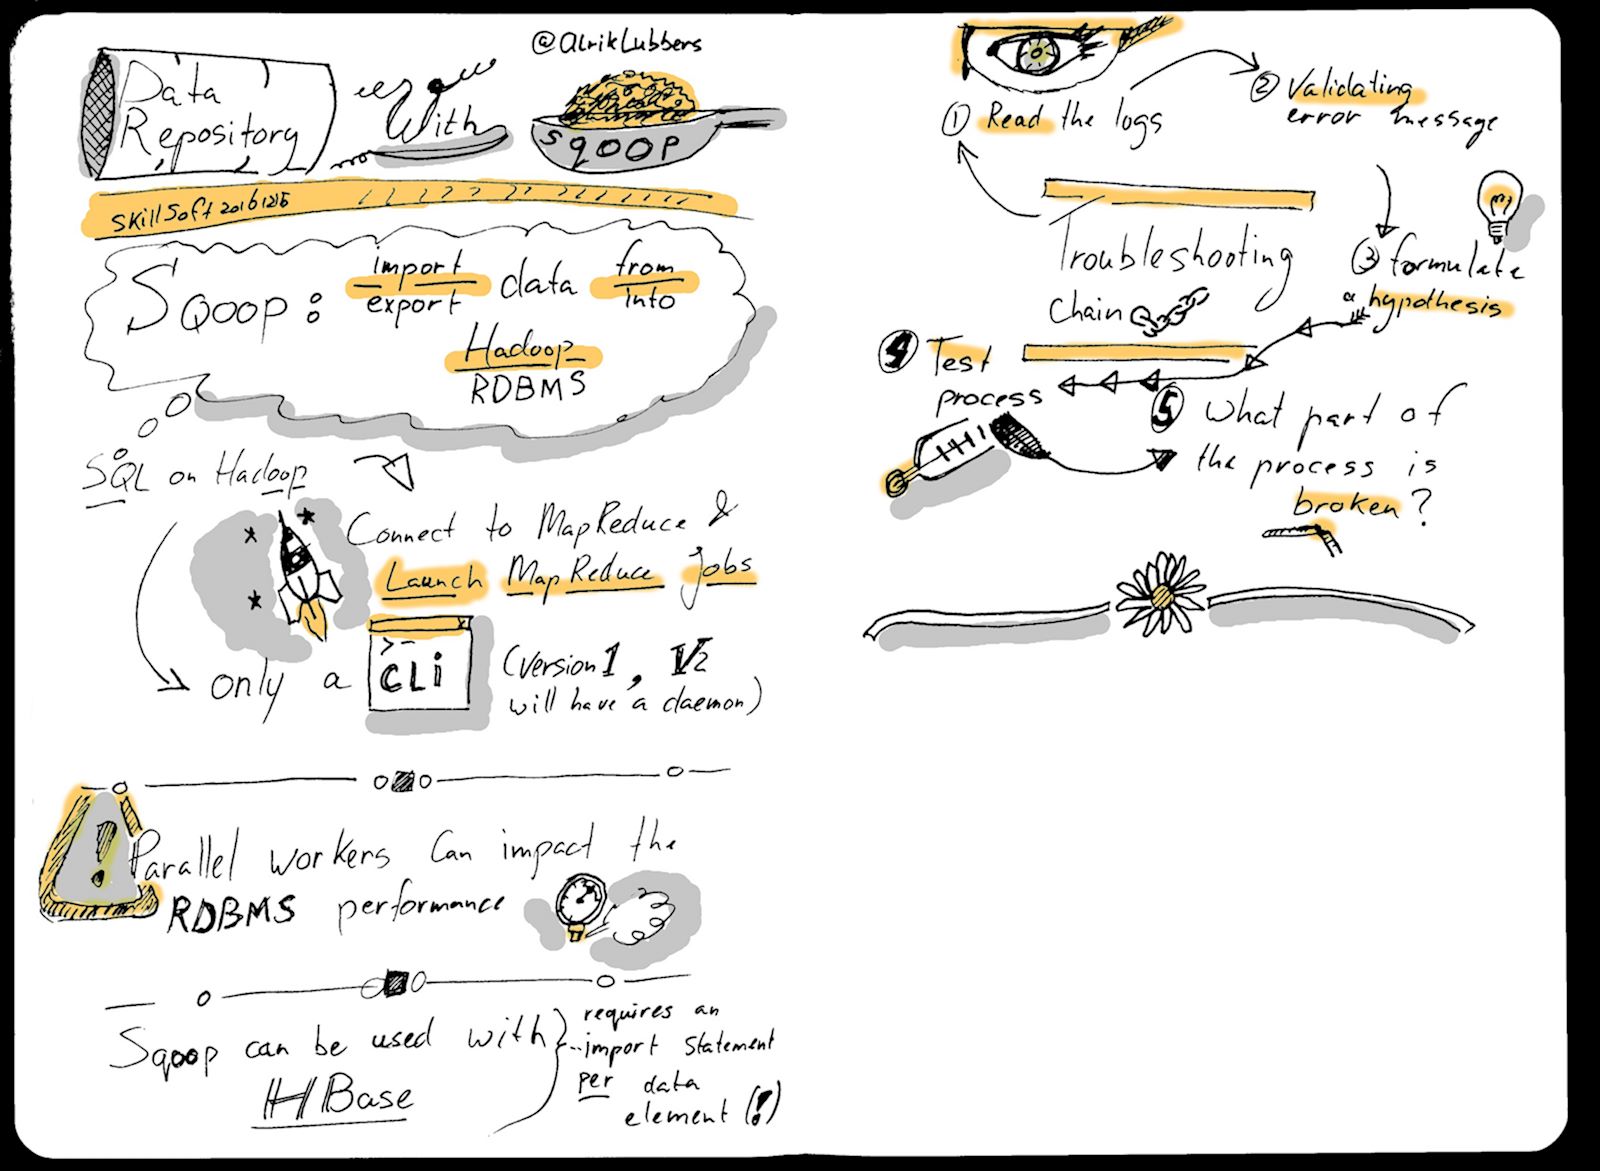 @alrikLubbers
Data
Repository
With
SQOOP
SkillSoft 20161215
SQOOP:
import
export
data
from
into
Hadoop
RDBMS
SQL on Hadoop
Connect to MapReduce &
Launch MapReduce jobs
only a
>-
CLi
(Version 1, V2
will have a daemon)
!
Parallel workers Can impact the
RDBMS performance
Sqoop can be used with
HBase
requires an
import statement
per data
element (!)
1 Read the logs
2 Validating
error message
3 formulate
a hypothesis
Troubleshooting
Chain
4 Test
process
5 What part of
the process is
broken?